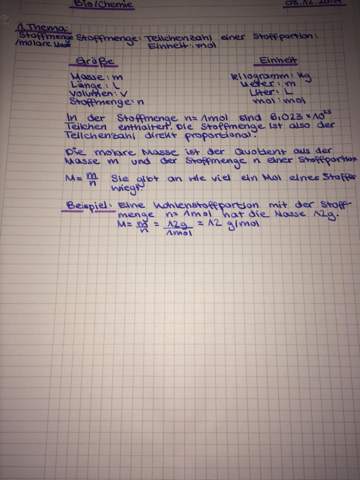 Bio/Chemie
1. Thema:
Stoffmenge
/molare
Stoffmenge: Teilchenzahl einer Stoffportion;
Einheit: mol
Größe Einheit
Masse: m kilogramm: kg
Länge: L Meter: m
Volumen: V Liter: L
Stoffmenge: n mol: mol
In der Stoffmenge n = 1mol sind 6,023 × 10²³
Teilchen enthalten. Die Stoffmenge ist also der
Teilchenzahl direkt proportional.
Die molare Masse ist der Quotient aus der
Masse m und der Stoffmenge n einer Stoffportion
M = m/n Sie gibt an wie viel ein Mol eines Stoffes
wiegt.
Beispiel: Eine Kohlenstoffportion mit der Stoff-
menge n = 1mol hat die Masse 12g.
M = m/n = 12g/1mol = 12 g/mol